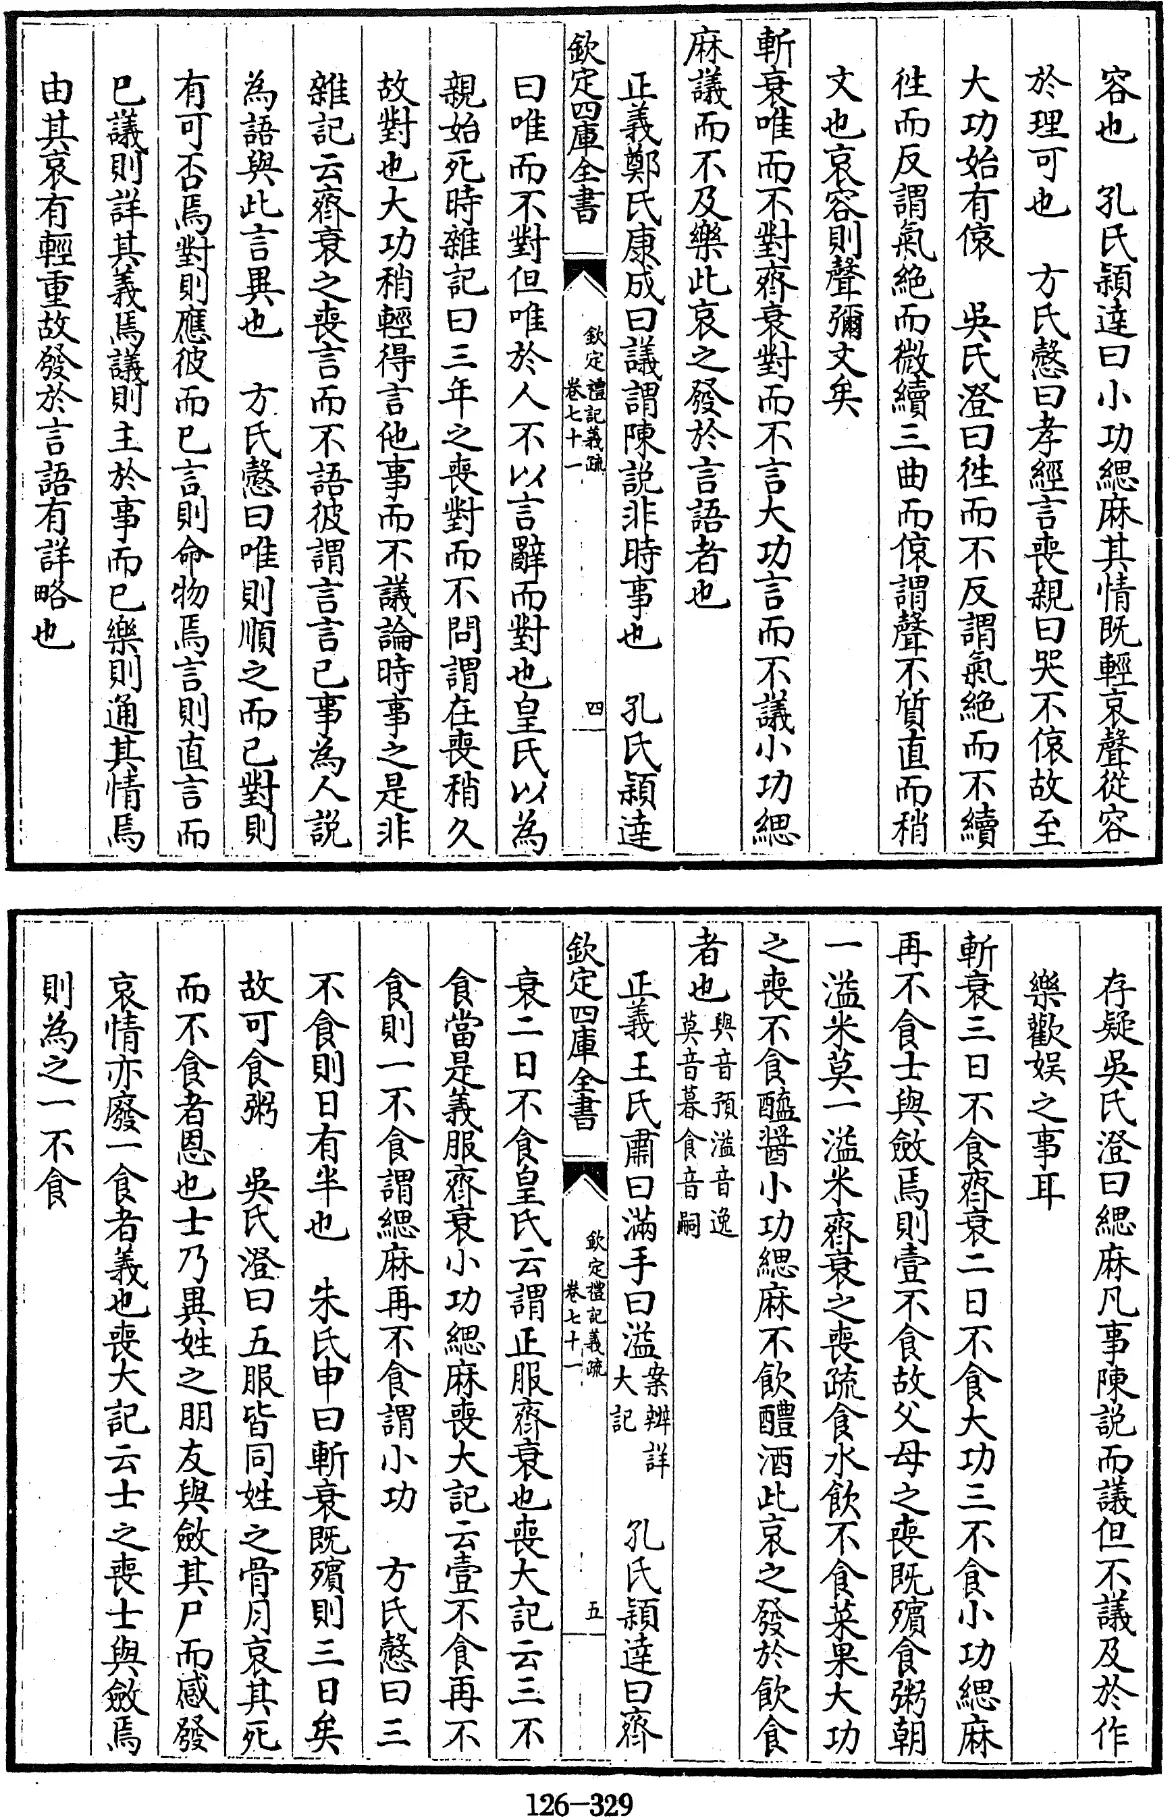 容也　孔氏頴達曰小功緦麻其情既輕哀聲從容
於理可也　方氏慤曰孝經言喪親曰哭不偯故至
大功始有偯　吳氏澄曰徃而不反謂氣絶而不續
徃而反謂氣絶而微續三曲而偯謂聲不質直而稍
文也哀容則聲彌文矣
斬衰唯而不對齊衰對而不言大功言而不議小功緦
麻議而不及樂此哀之發於言語者也
正義鄭氏康成曰議謂陳説非時事也　孔氏頴達
欽定四庫全書　欽定禮記義疏　卷七十一　四
曰唯而不對但唯於人不以言辭而對也皇氏以為
親始死時雜記曰三年之喪對而不問謂在喪稍久
故對也大功稍輕得言他事而不議論時事之是非
雜記云齊衰之喪言而不語彼謂言言己事為人説
為語與此言異也　方氏慤曰唯則順之而已對則
有可否焉對則應彼而已言則命物焉言則直言而
已議則詳其義焉議則主於事而已樂則通其情焉
由其哀有輕重故發於言語有詳略也
存疑吳氏澄曰緦麻凡事陳説而議但不議及於作
樂歡娱之事耳
斬衰三日不食齊衰二日不食大功三不食小功緦麻
再不食士與斂焉則壹不食故父母之喪既殯食粥朝
一溢米莫一溢米齊衰之喪疏食水飲不食菜果大功
之喪不食醯醬小功緦麻不飲醴酒此哀之發於飲食
者也與音預溢音逸莫音暮食音嗣
正義王氏肅曰滿手曰溢案辨詳大記　孔氏頴達曰齊
欽定四庫全書　欽定禮記義疏　卷七十一　五
衰二日不食皇氏云謂正服齊衰也喪大記云三不
食當是義服齊衰小功緦麻喪大記云壹不食再不
食則一不食謂緦麻再不食謂小功　方氏慤曰三
不食則日有半也　朱氏申曰斬衰既殯則三日矣
故可食粥　吳氏澄曰五服皆同姓之骨月哀其死
而不食者恩也士乃異姓之朋友與斂其尸而感發
哀情亦廢一食者義也喪大記云士之喪士與斂焉
則為之一不食
126-329